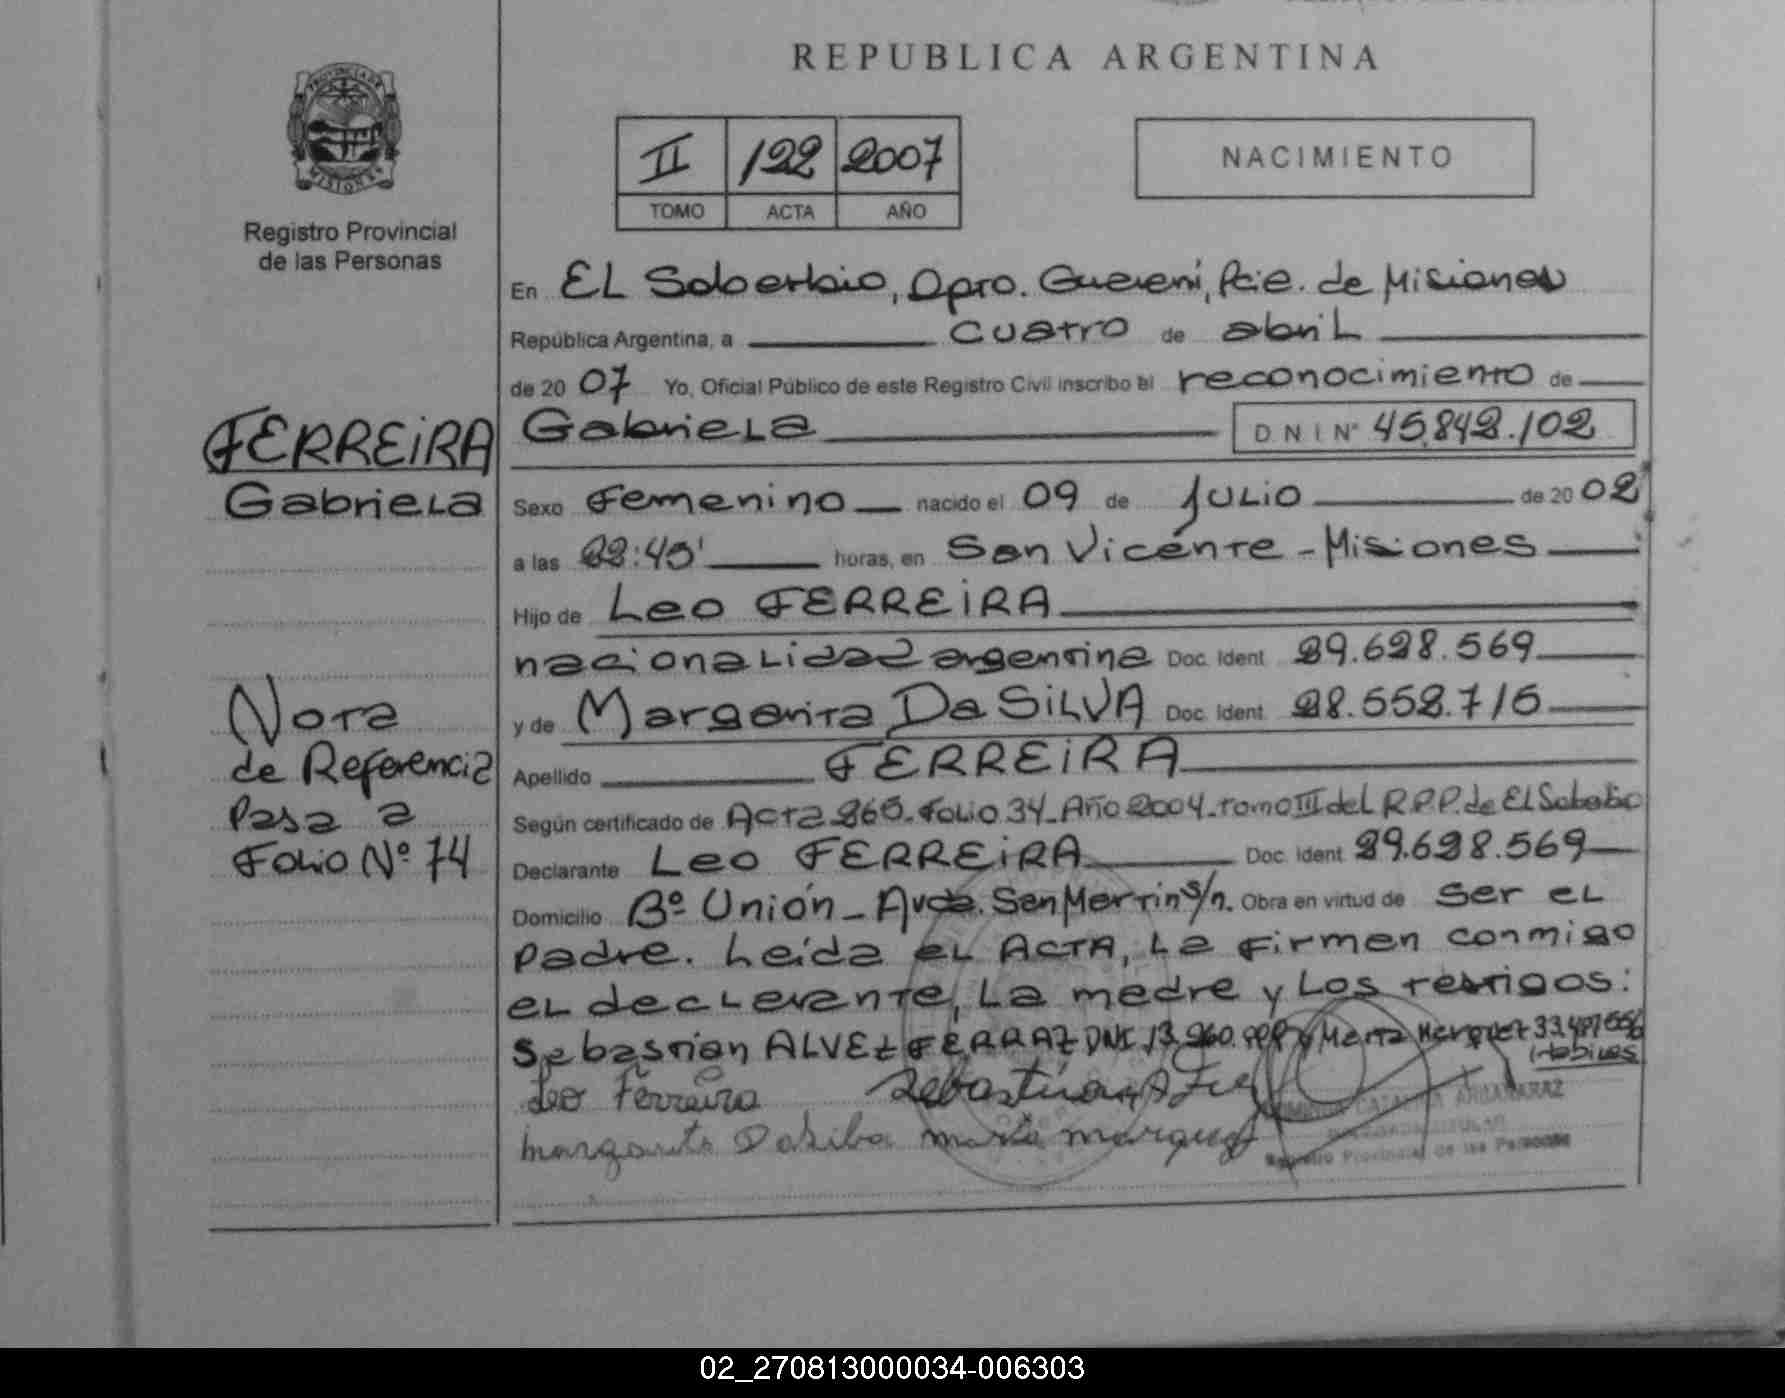 REPUBLICA ARGENTINA
PROVINCIA DE
MISIONES
Registro Provincial
de las Personas
II 122 2007
TOMO ACTA AÑO
NACIMIENTO
En EL Soberbio, Dpto. Guaraní, Pcia. de Misiones
República Argentina, a cuatro de abril
de 20 07 Yo, Oficial Público de este Registro Civil inscribo el reconocimiento de
FERREIRA
Gabriela
Gabriela D N I Nº 45.842.102
Sexo Femenino nacido el 09 de Julio de 20 02
a las 22:45' horas, en San Vicente - Misiones
Hijo de Leo FERREIRA
nacionalidad argentina Doc. Ident 29.628.569
y de Margarita Da SILVA Doc. Ident. 28.558.715
Apellido FERREIRA
Nota
de Referencia
Pasa a
Folio Nº 74
Según certificado de Acta 265. Folio 34. Año 2004. Tomo III del R.P.P. de El Soberbio
Declarante Leo FERREIRA Doc. Ident 29.628.569
Domicilio Bº Unión - Avda. San Martin s/n. Obra en virtud de ser el
padre. Leída el ACTA, la firman conmigo
el declarante, la madre y los testigos:
Sebastian ALVEZ FERRAZ DNI 13.960. y Marta Marquez
Habiles
Leo Ferreira Sebastián A
Margarita Dasilba marta marquez
Registro Provincial de las Personas
02_270813000034-006303